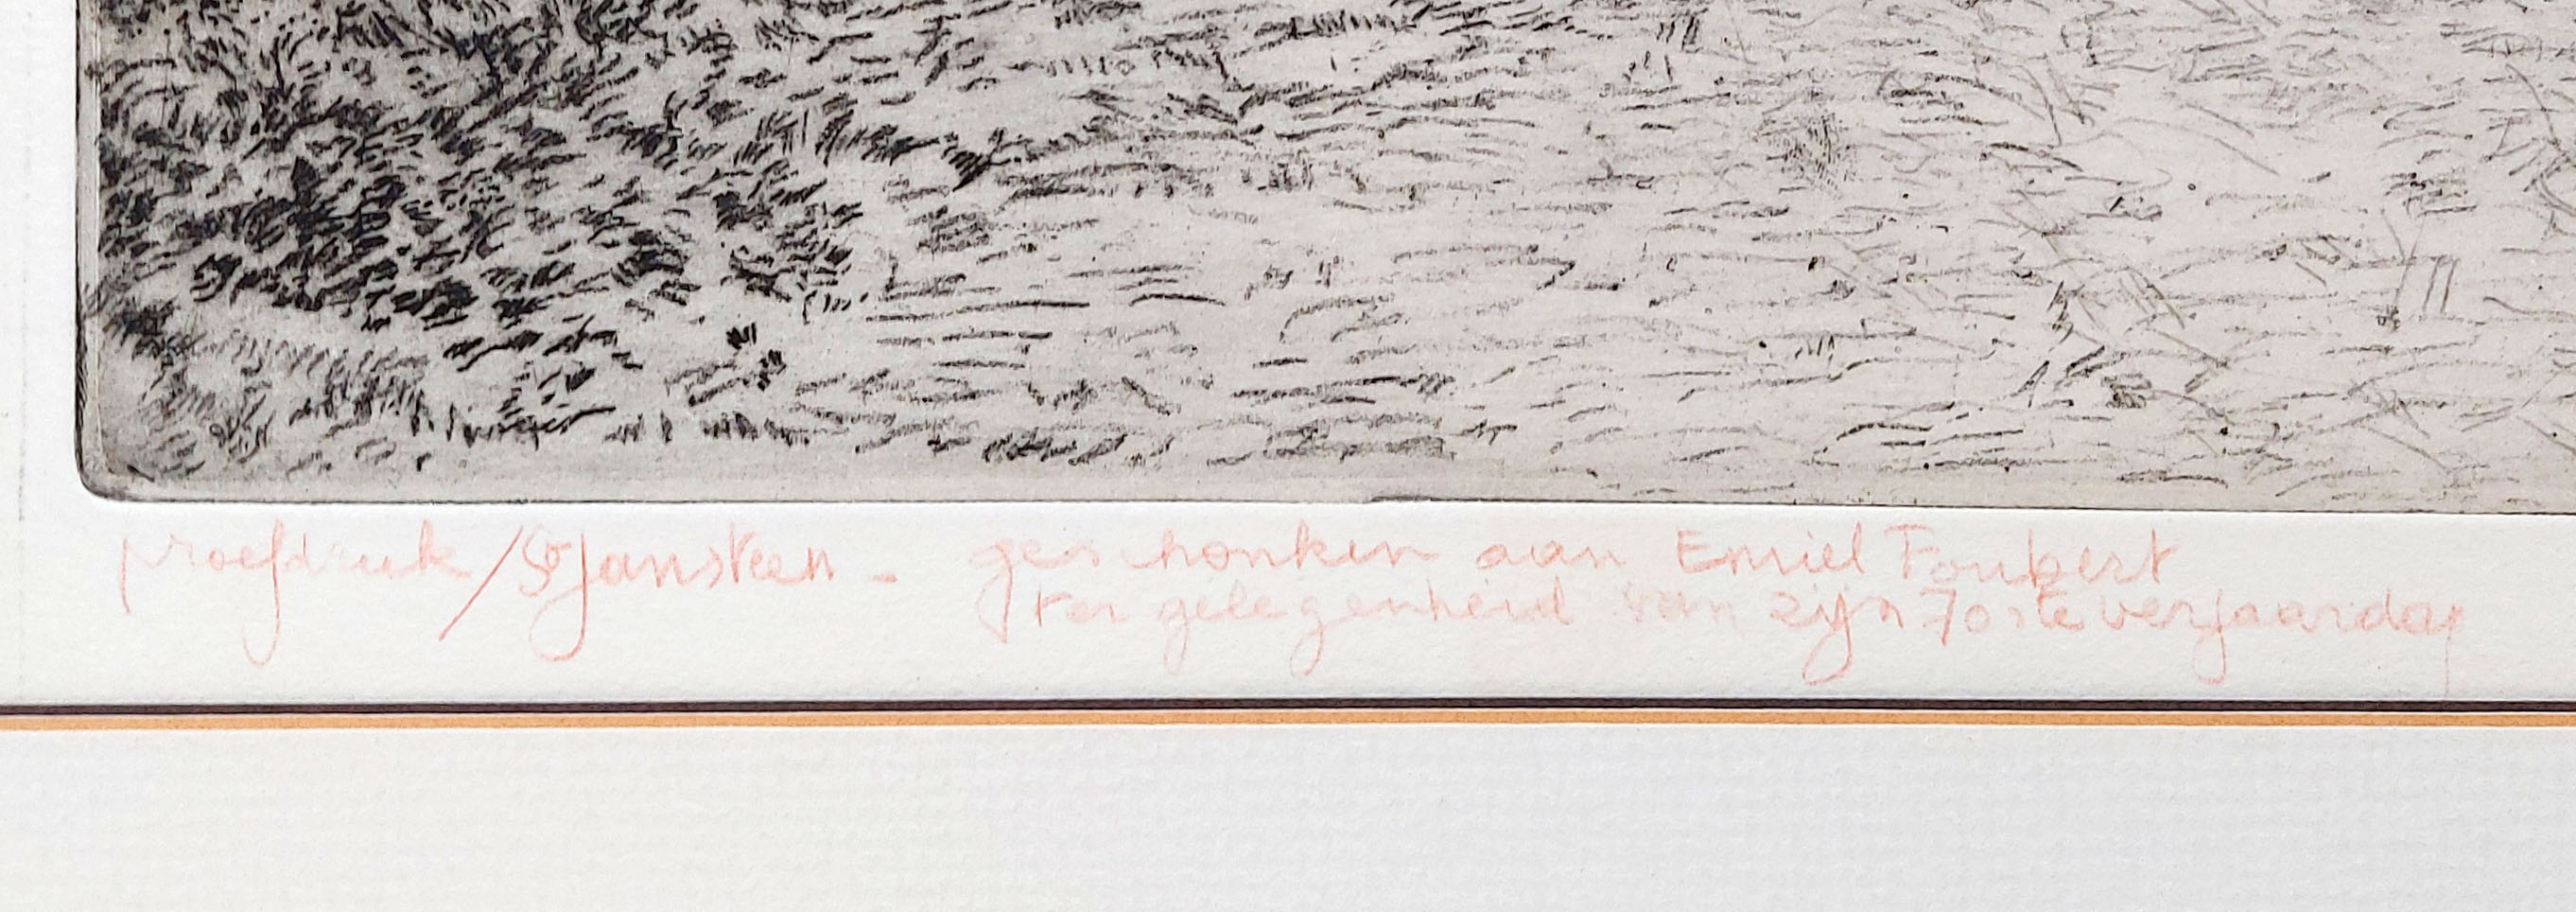 proefdruk / St Jansteen - geschonken aan Emiel Foubert
ter gelegenheid van zijn 70ste verjaardag